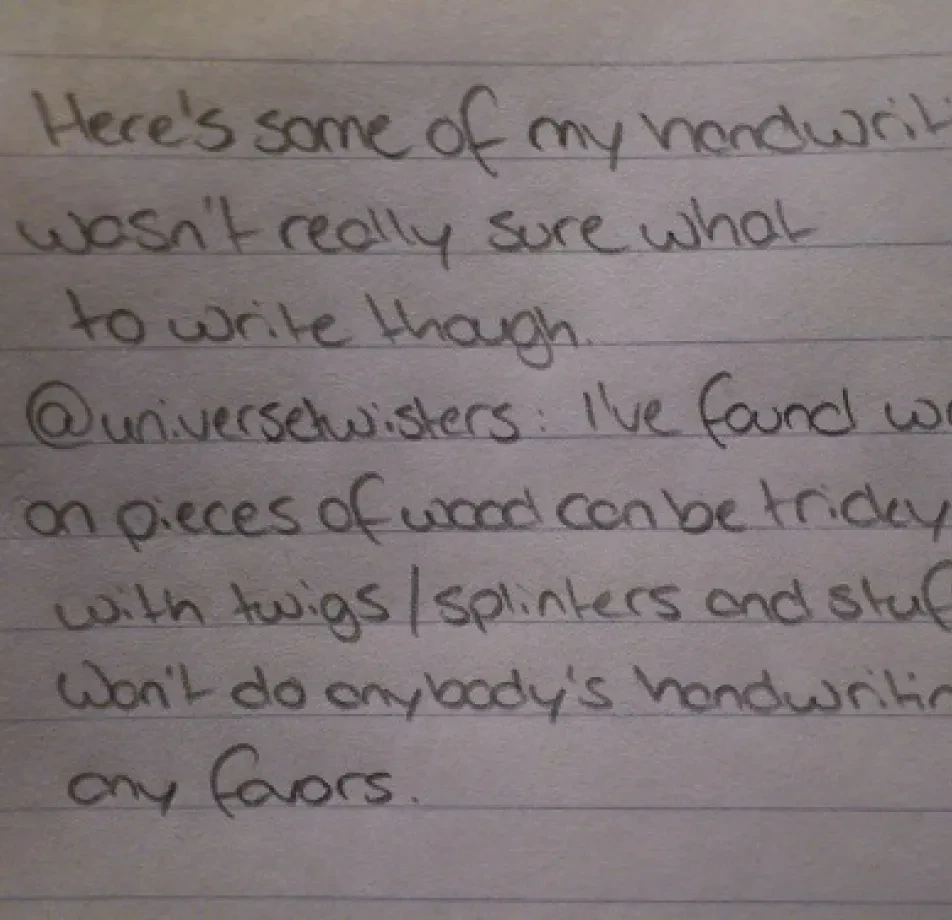 Here's some of my handwrit
wasn't really sure what
to write though.
@universetwisters: I've found w
on pieces of wood can be tricky
with twigs/splinters and stuf
Won't do anybody's handwritin
any favors.